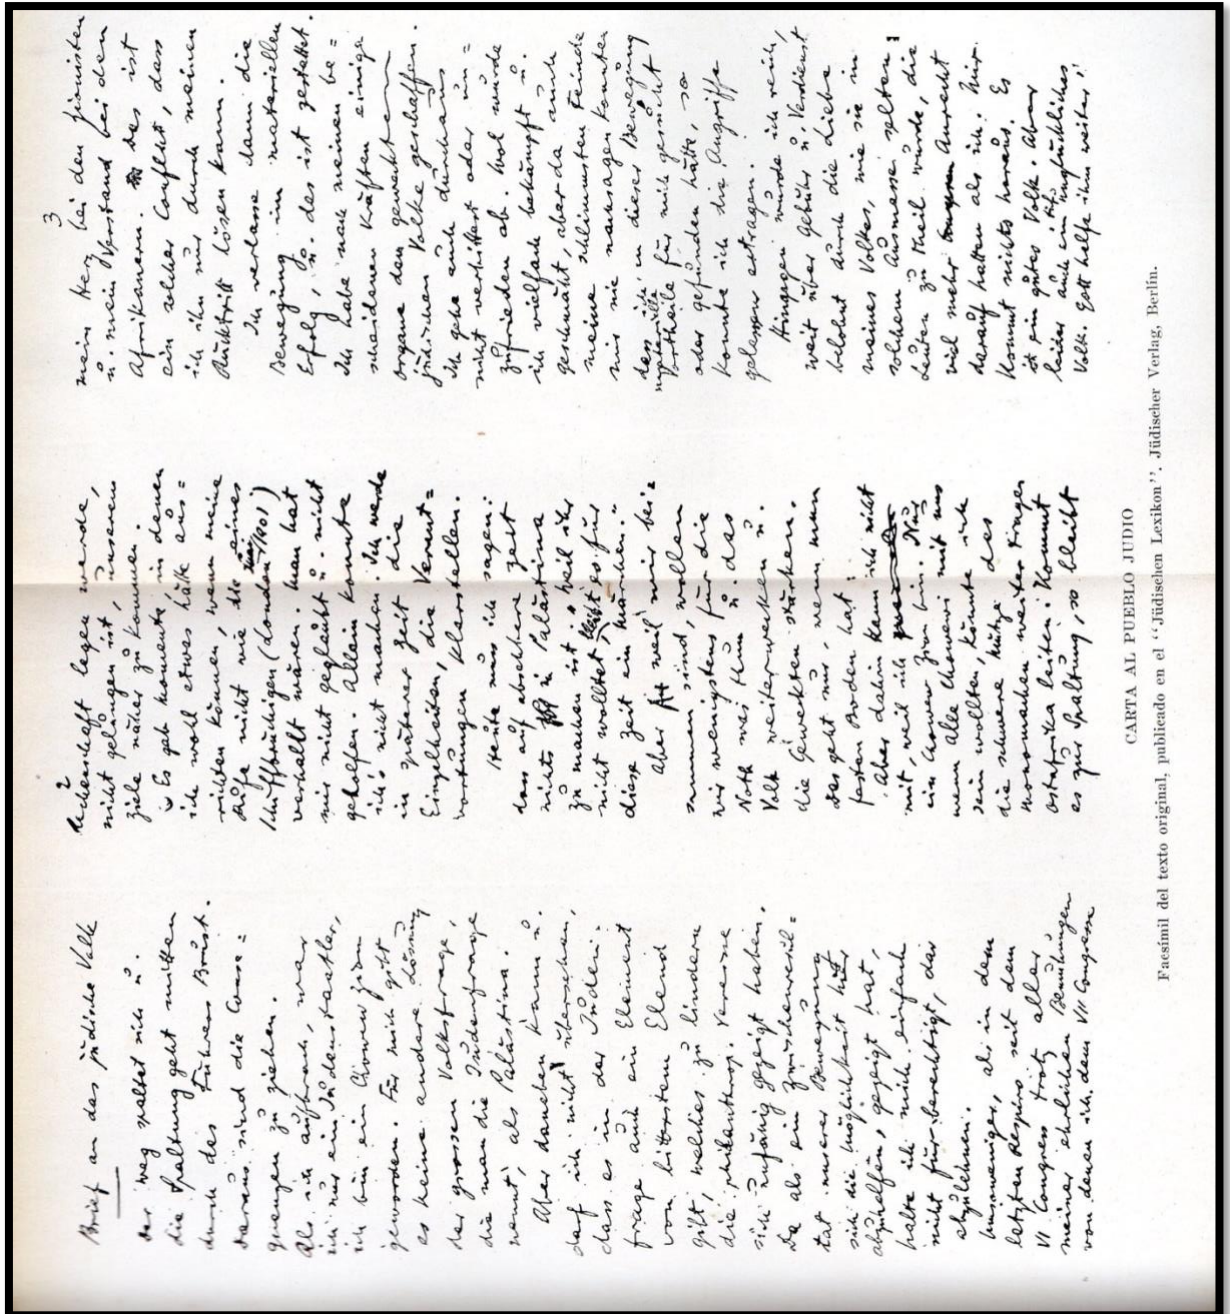 Brief an das jüdische Volk
Der Weg spaltet sich u.
die Spaltung geht mitten
durch des Führers Brust.
Daraus sind die Conse=
quenzen zu ziehen.
Als ich auftrat, war
ich nur ein Judenstaatler,
ich bin ein Chowew Zion
geworden. Für mich gibt
es keine andere Lösung
der grossen Volksfrage,
die man die Judenfrage
nennt, als Palästina.
Aber daneben kann u.
darf ich nicht übersehen,
dass es in der Juden=
frage auch ein Element
von bittersten Elend
gibt, welches zu lindern
die philanthrop. Vereine
sich unfähig gezeigt haben.
Da als ein Zwischenresul=
tat unserer Bewegung
sich die Möglichkeit hier
abzuhelfen, gezeigt hat,
halte ich mich einfach
nicht für berechtigt, das
abzulehnen.
umsoweniger, als in dem
letzten Respiro seit dem
VI Congress trotz aller
meiner ehrlichen Bemühungen
von denen ich dem VII Congresse
2
Rechenschaft legen werde,
nicht gelungen ist, unserem
Ziele näher zu kommen.
Es gab Momente, in denen
ich wohl etwas hätte aus=
richten können, wenn meine
Rufe nicht wie die eines
Schiffbrüchigen (London 1901)
verhallt wären. Man hat
mir nicht geglaubt u. nicht
geholfen. Allein konnte
ich's nicht machen. Ich werde
in späterer Zeit die
Einzelheiten, die Verant=
wortungen, klarstellen.
Heute muss ich sagen:
dass auf absehbare Zeit
nichts in Palästina
zu machen ist, weil ihr
nicht wolltet, es für
diese Zeit ein Märchen."
Aber weil wir bei=
sammen sind, wollen
wir wenigstens für die
Noth was thun u. das
Volk weiterwecken u.
die Geweckten stärken.
Das geht nur, wenn man
festen Boden hat.
Aber dahin kann ich nicht
mit, weil ich
ein Chowew Zion bin. Nur
wenn alle Chowewi mit uns
sein wollten, könnte ich
die schwere Mütze des
Monomachen weiter tragen
Ostafrika leiten. Kommt
es zur Spaltung, so bleibt
3
mein Herz bei den Zionisten
u. mein Verstand bei den
Afrikanern. Das ist
ein solcher Conflict, dass
ich ihn nur durch meinen
Rücktritt lösen kann.
Ich verlasse dann die
Bewegung im materiellen
Erfolg, u. das ist gestattet.
Ich habe nach meinen be=
scheidenen Kräften einige
Organe dem geweckten
jüdischen Volke geschaffen.
Ich gehe auch durchaus
nicht verbittert oder un=
zufrieden ab. Wol wurde
ich vielfach bekämpft u.
geschmäht, aber da auch
meine schlimmsten Feinde
mir nie nachsagen konnten
dass ich in dieser Bewegung
materielle
Vortheile für mich gesucht
oder gefunden hätte, so
konnte ich die Angriffe
gelassen ertragen.
Hingegen wurde ich reich,
weit über Gebühr u. Verdienst
belohnt durch die Liebe
meines Volkes, wie sie in
solchem Ausmasse selten
Leuten zu Theil wurde, die
viel mehr Anrecht
darauf hatten als ich. Mir
kommt nichts heraus. Es
ist ein gutes Volk. Aber
leider auch ein tief unglückliches
Volk. Gott helfe ihm weiter!
CARTA AL PUEBLO JUDIO
Facsímil del texto original, publicado en el "Jüdischen Lexikon". Jüdischer Verlag, Berlin.